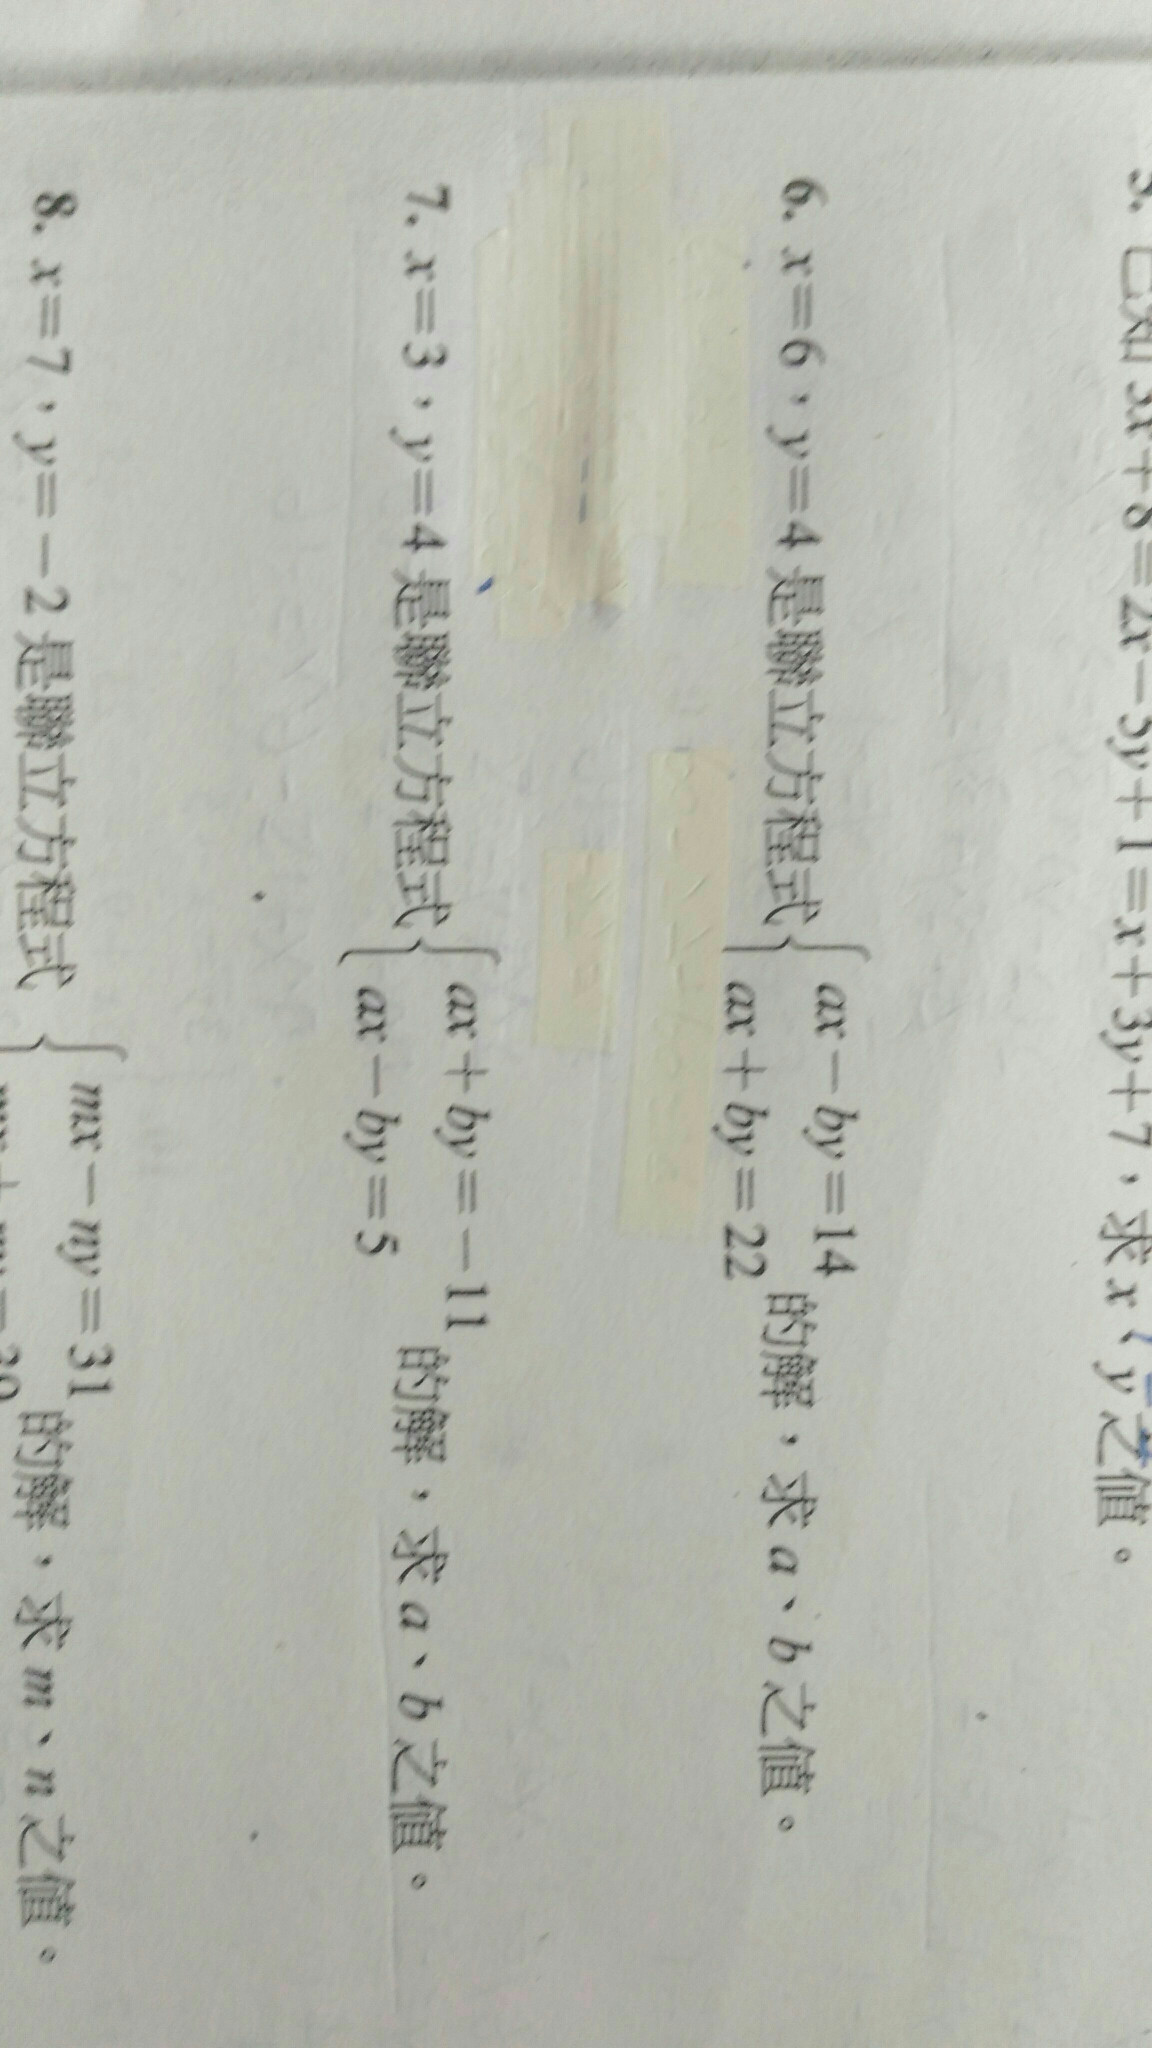 5. 已知 3x+8=2x-5y+1=x+3y+7，求 x、y 之值。
6. x=6，y=4 是聯立方程式
ax-by=14
ax+by=22
的解，求 a、b 之值。
7. x=3，y=4 是聯立方程式
ax+by=-11
ax-by=5
的解，求 a、b 之值。
8. x=7，y=-2 是聯立方程式
mx-my=31
的解，求 m、n 之值。